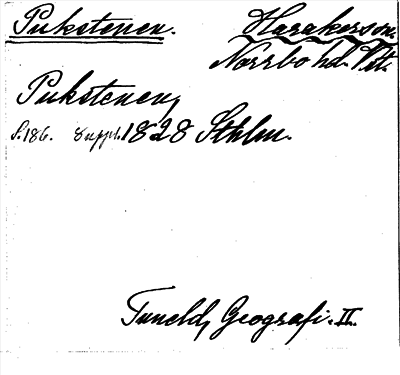 Pukstenen. Harakers sn.
Norrbo hd. Vstl.
Pukstenen,
s. 186. Suppl. 1828 Sthlm.
Tuneld, Geografi. II.